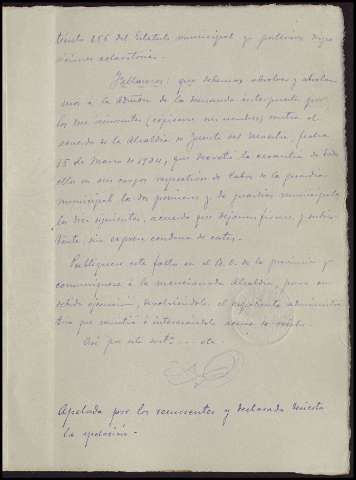 256 del Estatuto municipal y posteriores dispo
siciones aclaratorias.
Fallamos: que debemos absolver y absolve
mos a la Admón de la demanda interpuesta por
los recurrentes (copiense sus nombres) contra el
acuerdo de la Alcaldía de Fuente del Maestre, fecha
15 de Marzo de 1934, que decretó la cesantía de todos
ellos en sus cargos respectivos de Cabos de la guardia
municipal los dos primeros y de guardias municipales
los siguientes, acuerdo que dejamos firme y subsis
tente, sin expresa condena de costas.
Publíquese este fallo en el B. O. de la provincia y
comuníquese á la mencionada Alcaldía, para su
debida ejecución, devolviéndole el expediente administra
tivo que remitió é interesándole acuse de recibo.
Así por esta sent.ª
Apelada por los recurrentes y declarada desierta
la apelación.